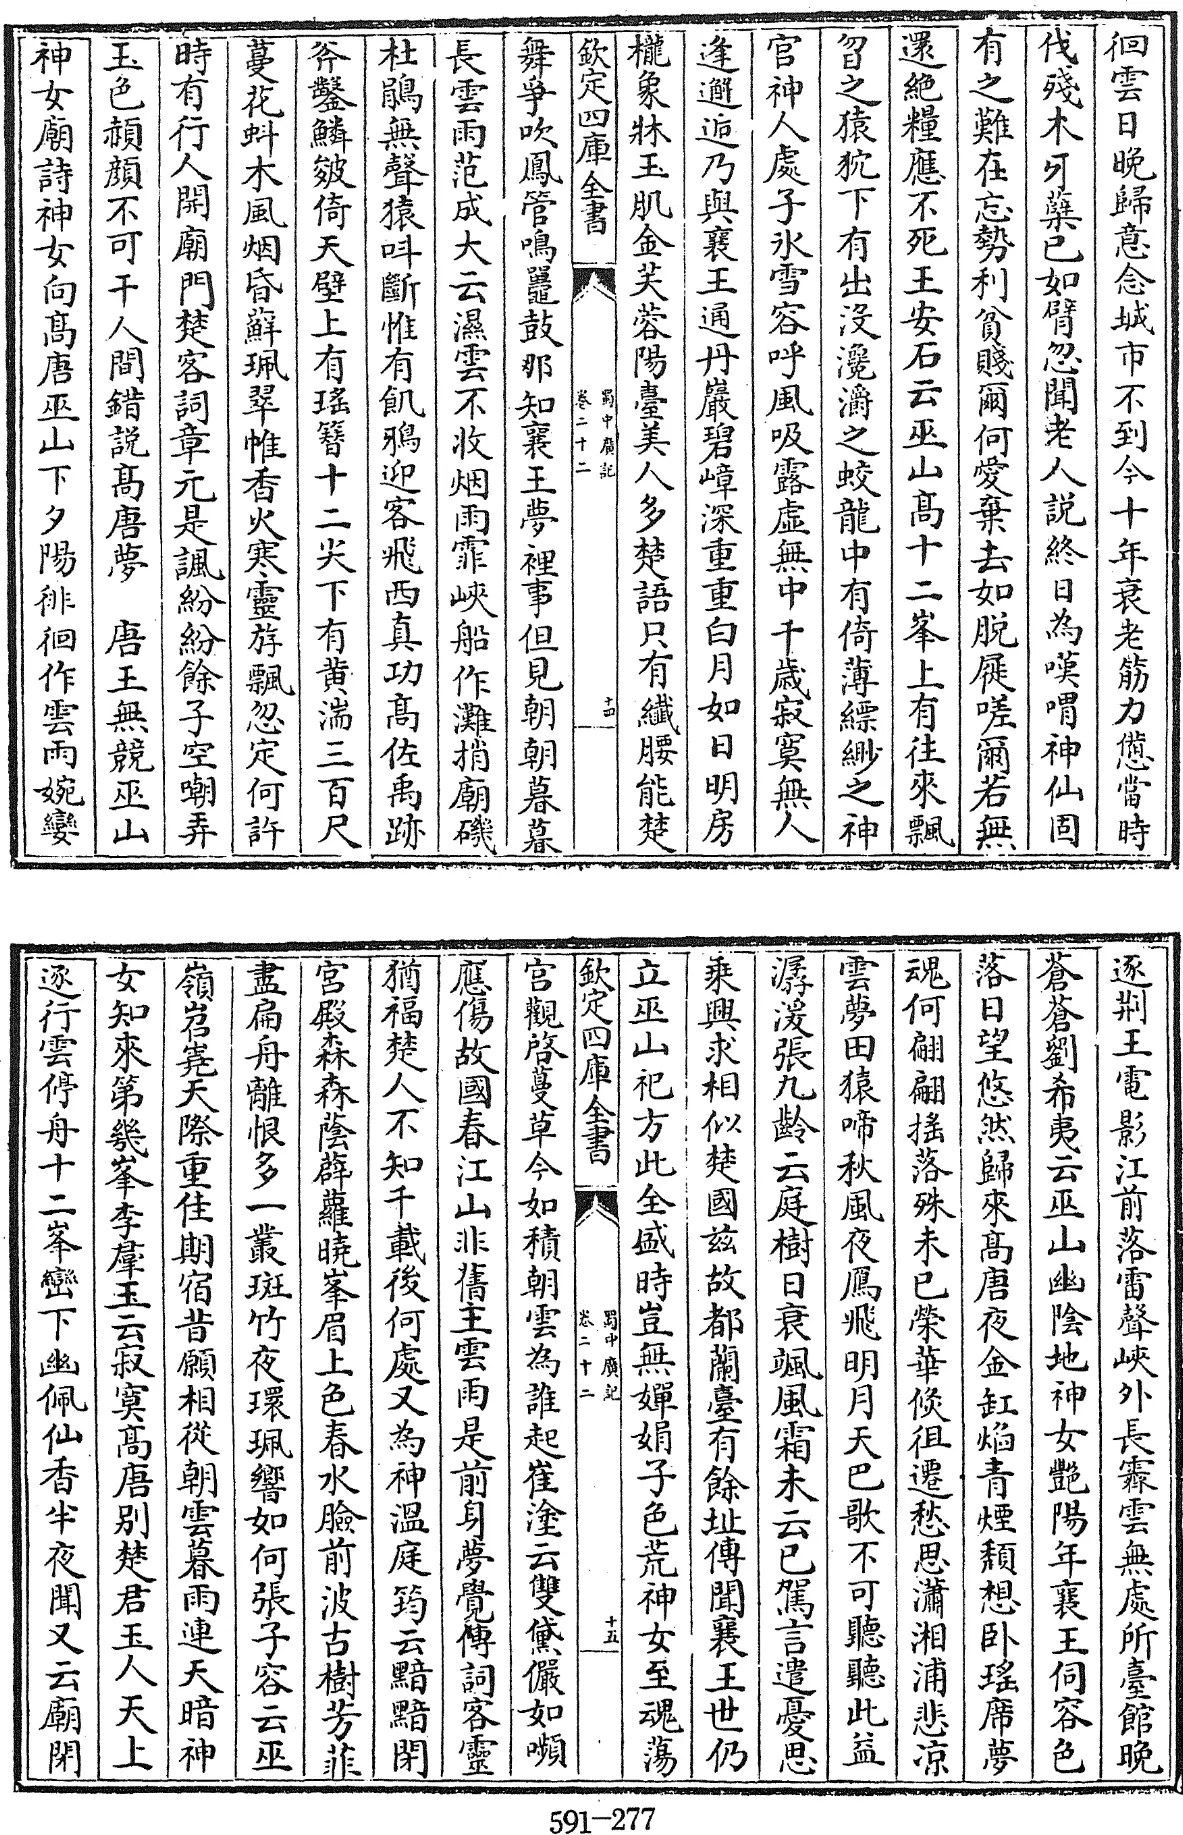 徊雲日晚歸意念城市不到今十年衰老筋力憊當時
伐殘木牙蘖已如臂忽聞老人説終日為嘆喟神仙固
有之難在忘勢利貧賤爾何愛棄去如脱屣嗟爾若無
還絶糧應不死王安石云巫山髙十二峯上有往來飄
曶之猿猊下有出沒瀺灂之蛟龍中有倚薄縹緲之神
官神人處子氷雪容呼風吸露虚無中千歲寂寞無人
逢邂逅乃與襄王通丹巖碧嶂深重重白月如日明房
櫳象牀玉肌金芙蓉陽臺美人多楚語只有纖腰能楚
欽定四庫全書
蜀中廣記
卷二十二
十四
舞爭吹鳳管鳴鼉鼓那知襄王夢裡事但見朝朝暮暮
長雲雨范成大云濕雲不收烟雨霏峽船作灘捎廟磯
杜鵑無聲猿呌斷惟有飢鴉迎客飛西真功髙佐禹跡
斧鑿鱗皴倚天壁上有瑤簪十二尖下有黄湍三百尺
蔓花虯木風烟昏蘚珮翠帷香火寒靈斿飄忽定何許
時有行人開廟門楚客詞章元是諷紛紛餘子空嘲弄
玉色頩顔不可干人間錯説髙唐夢　唐王無競巫山
神女廟詩神女向髙唐巫山下夕陽徘徊作雲雨婉孌
逐荆王電影江前落雷聲峽外長霽雲無處所臺館晚
蒼蒼劉希夷云巫山幽陰地神女艷陽年襄王伺容色
落日望悠然歸來髙唐夜金釭焰青煙頽想卧瑤席夢
魂何翩翩搖落殊未已榮華倐徂遷愁思瀟湘浦悲凉
雲夢田猿啼秋風夜鴈飛明月天巴歌不可聽聽此益
潺湲張九齡云庭樹日衰颯風霜未云已駕言遣憂思
乘興求相似楚國兹故都蘭臺有餘址傳聞襄王世仍
立巫山祀方此全盛時豈無嬋娟子色荒神女至魂蕩
欽定四庫全書
蜀中廣記
卷二十二
十五
宫觀啓蔓草今如積朝雲為誰起崔塗云雙黛儼如嚬
應傷故國春江山非舊主雲雨是前身夢覺傳詞客靈
猶福楚人不知千載後何處又為神溫庭筠云黯黯閉
宮殿森森蔭薜蘿曉峯眉上色春水臉前波古樹芳菲
盡扁舟離恨多一叢斑竹夜環珮響如何張子容云巫
嶺岧嶤天際重佳期宿昔願相從朝雲暮雨連天暗神
女知來第幾峯李羣玉云寂寞髙唐别楚君玉人天上
逐行雲停舟十二峯巒下幽佩仙香半夜聞又云廟閉
591-277